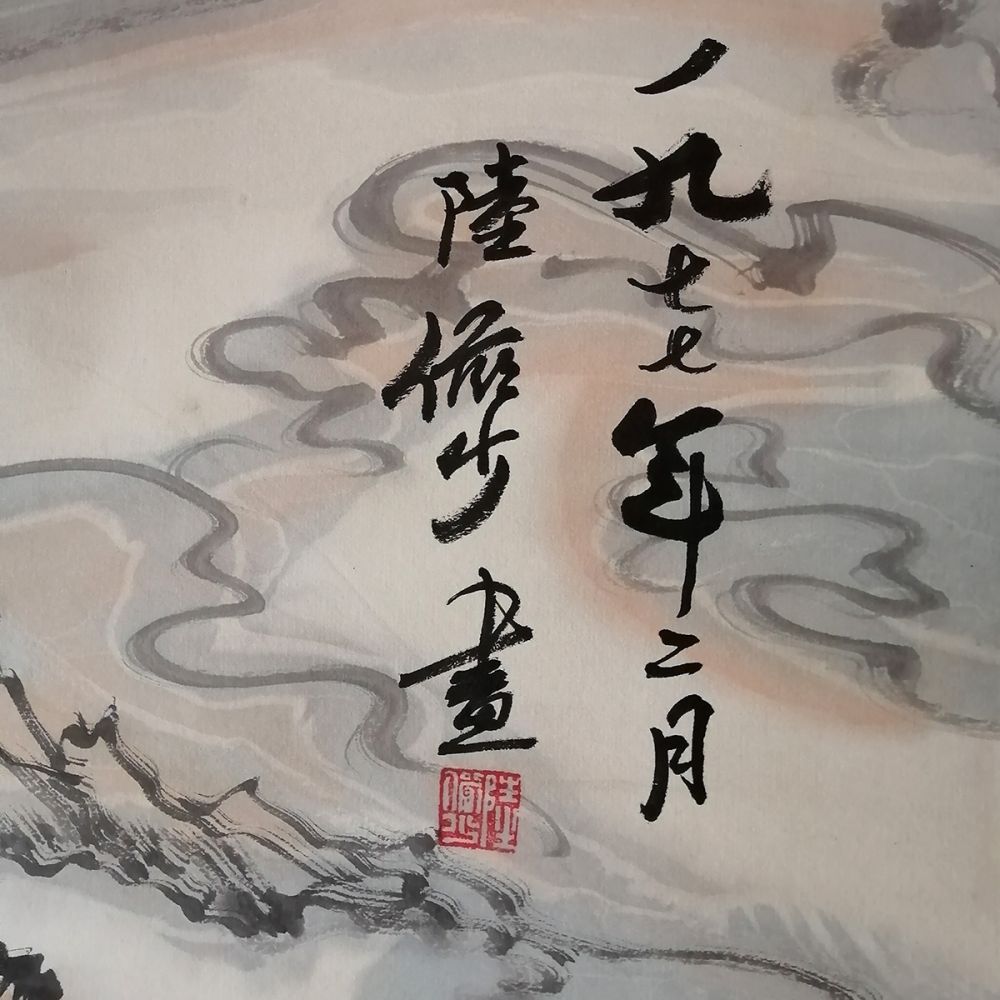 一九七七年二月
陸儼少畫
陸儼少